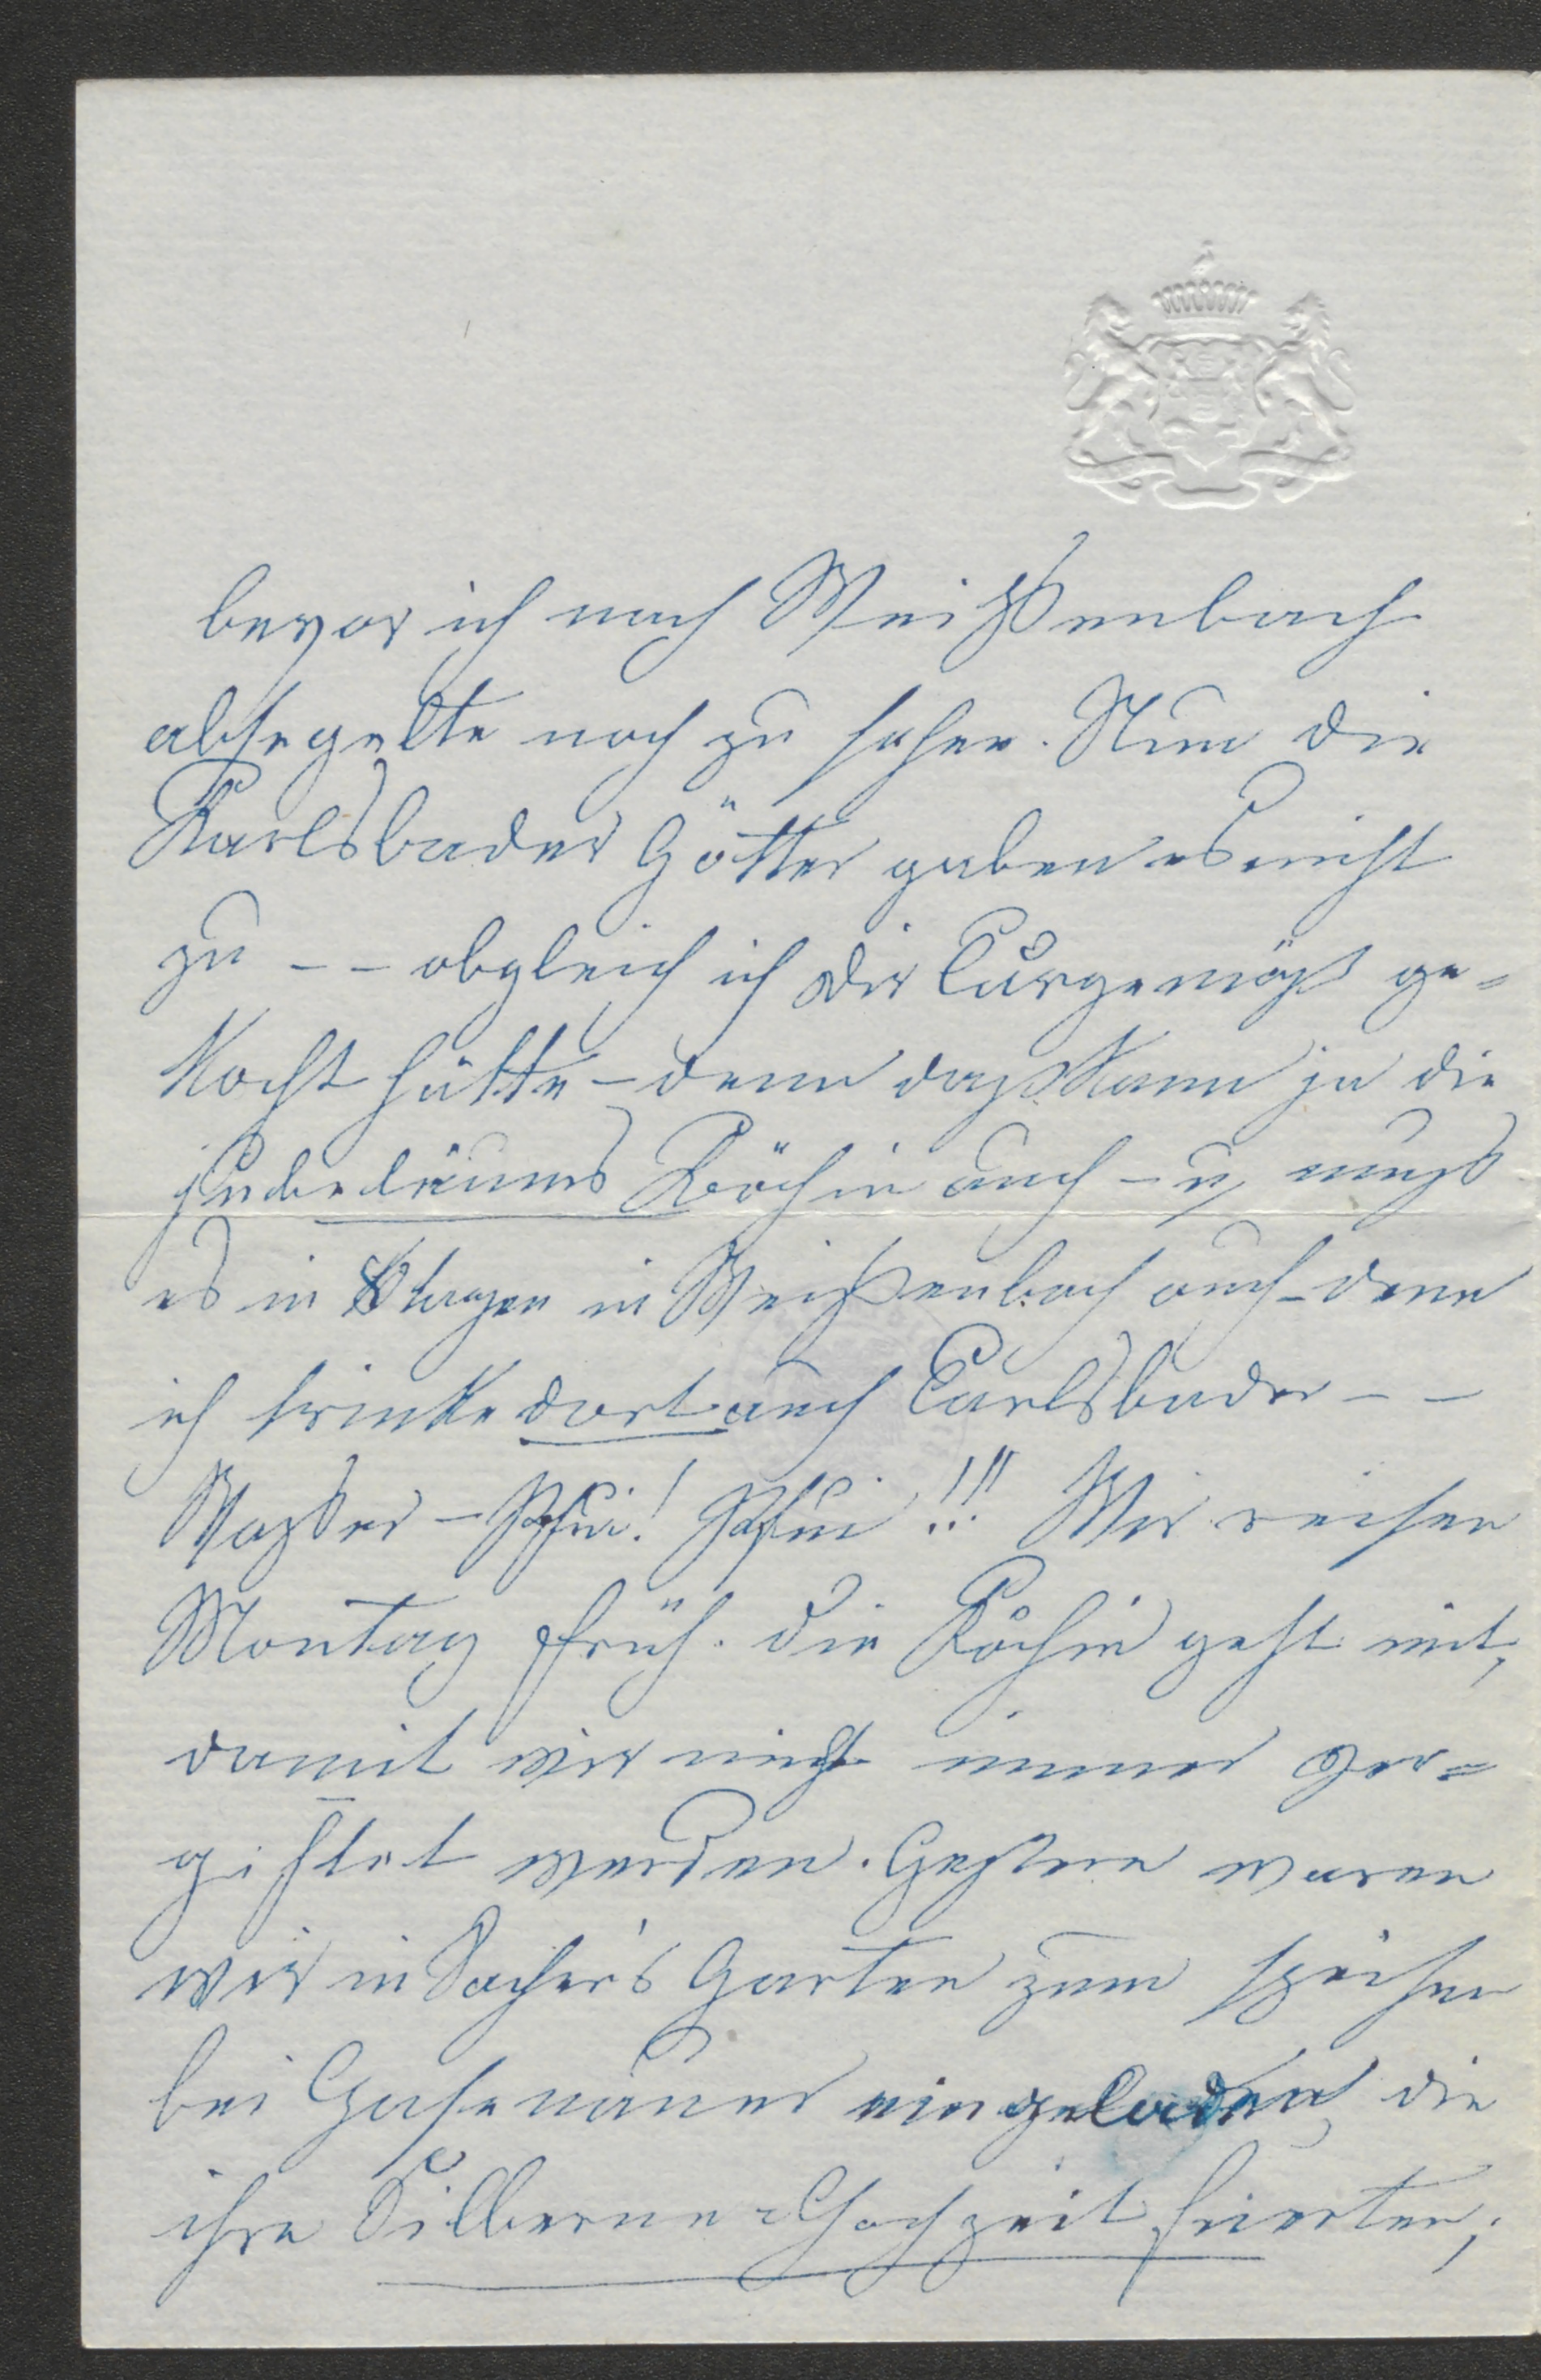 bevor ich nach Weißenbach
absegelte noch zu sehen. Nun die
Karlsbader Götter gaben es nicht
zu -- obgleich ich dir Curgemäß ge=
kocht hätte – denn daß kann ja die
Jubeläums Köchin auch – u muß
es in 8 tagen in Weißenbach auch – denn
ich trinke dort auch Carlsbader --
Wasser – Pfui! Pfui!!! Wir reisen
Montag früh. Die Köchin geht mit,
damit wir nicht immer ver=
giftet werden. Gestern waren
wir in Sacher's Garten zum speisen
bei Gasenauer eingeladen, die
ihre Silberne=Hochzeit feierten;